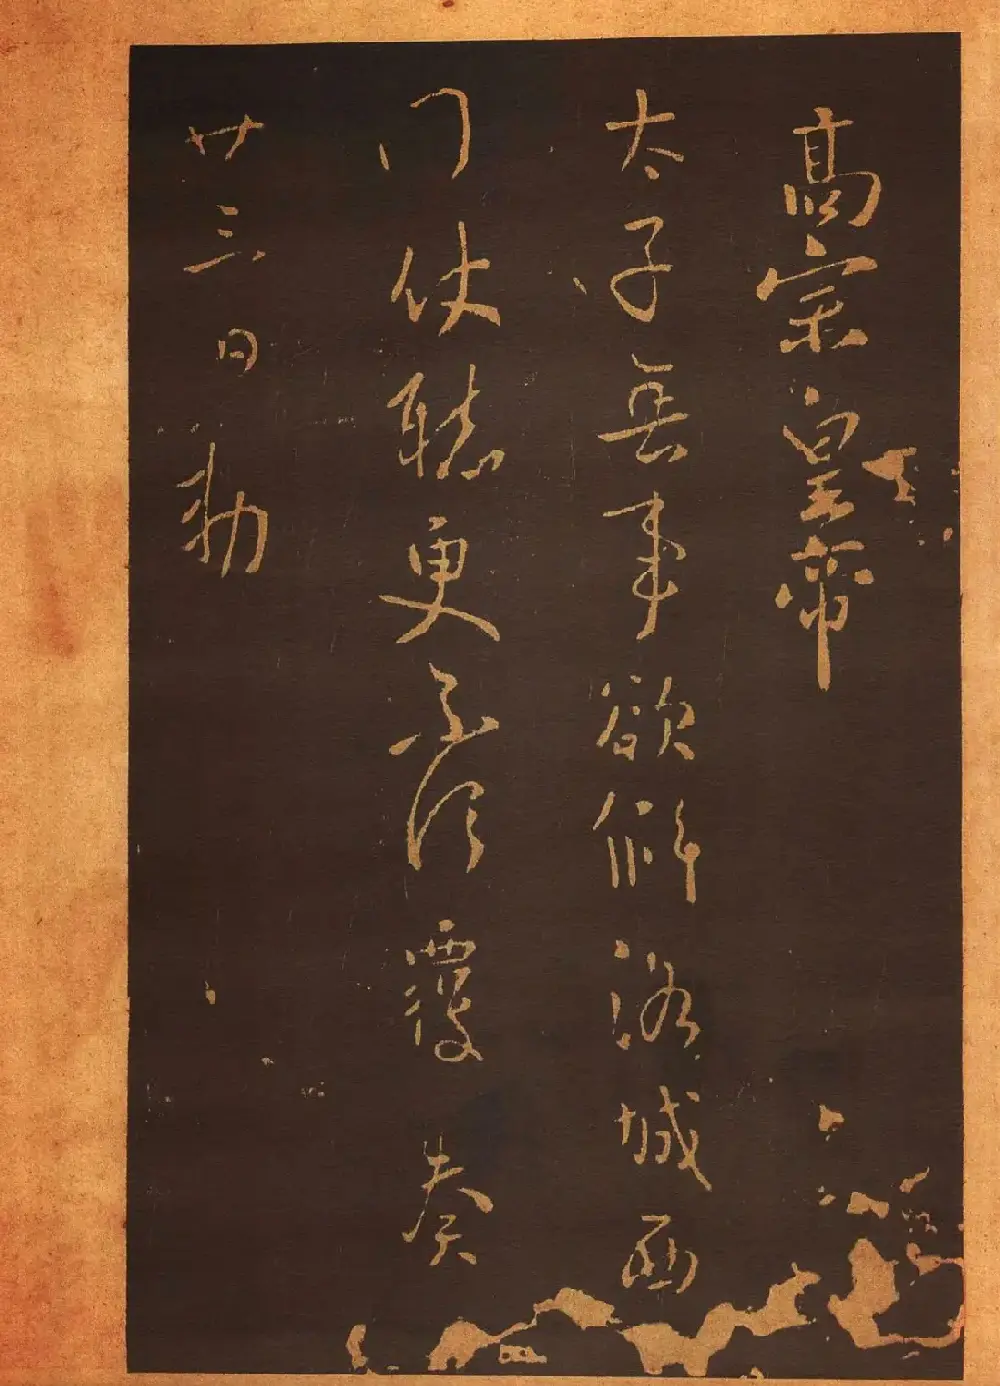 高宗皇帝
太子無事欲脩洛城西
門伏聽更不須覆奏
廿三日勅